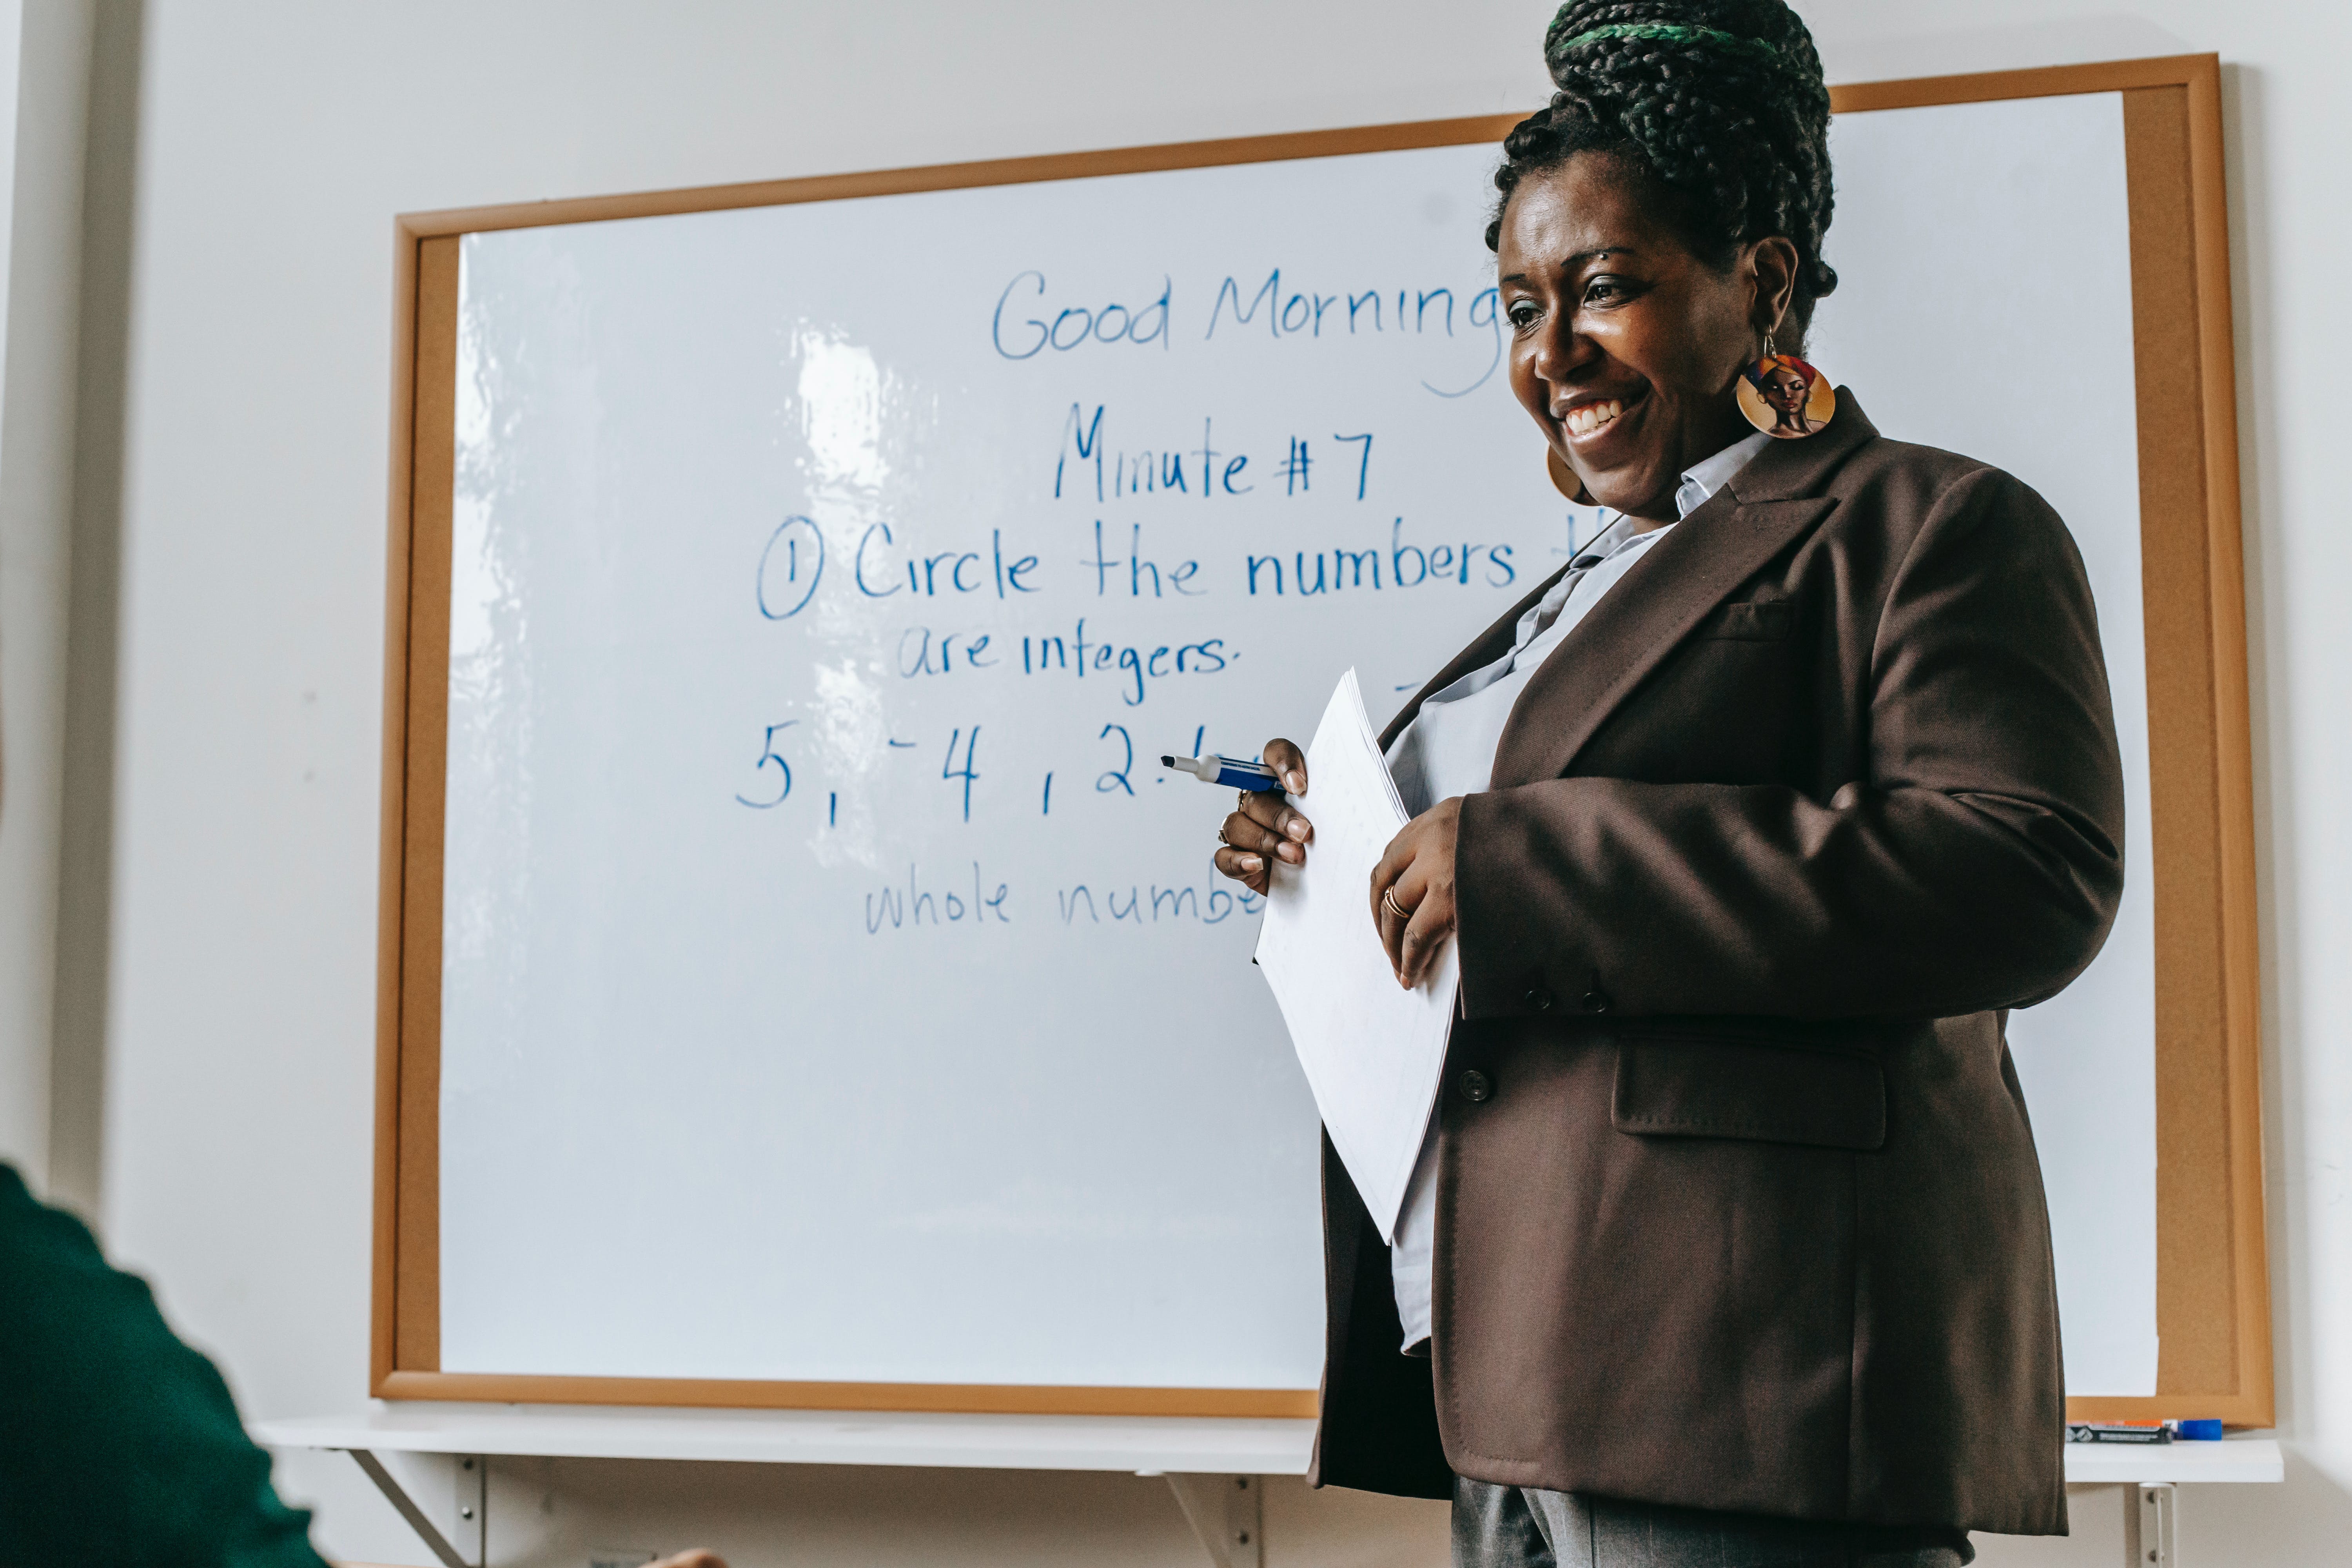 Good Morning
Minute #7
① Circle the numbers
are integers.
5, -4, 2.
whole